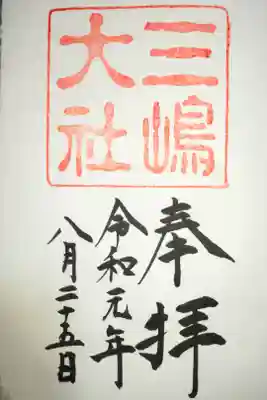 三嶋
大社
奉拝
令和元年
八月二十五日